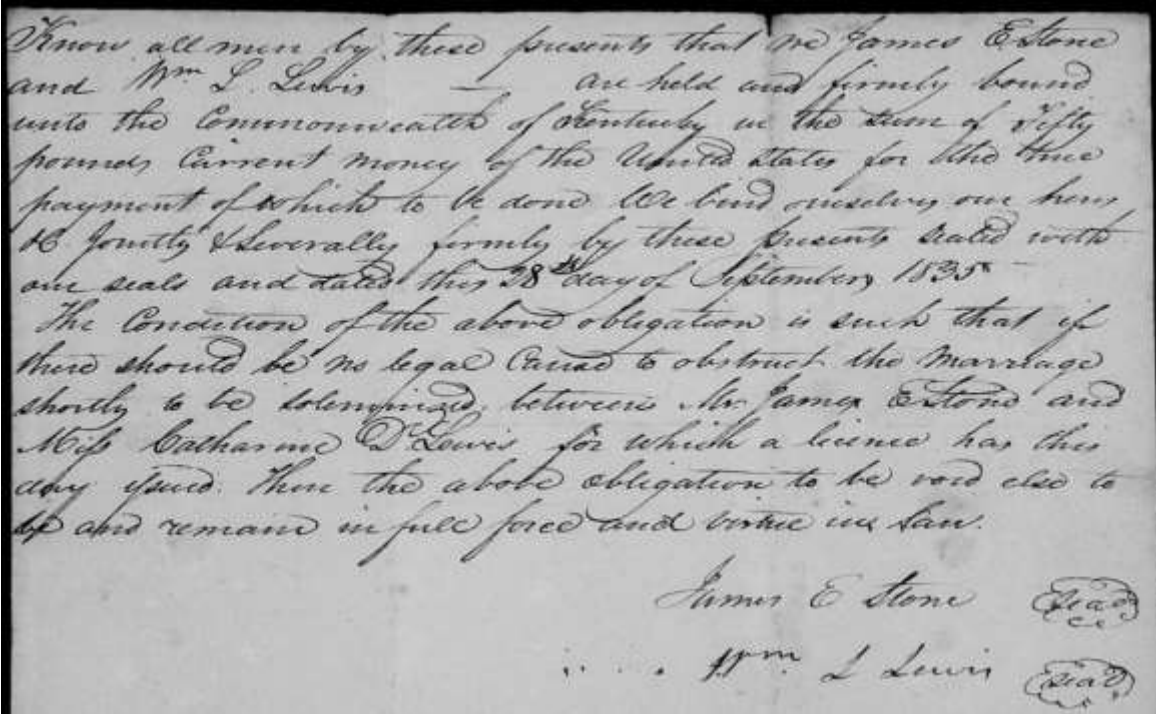 Know all men by these presents that we James E Stone
and Wm L. Lewis — are held and firmly bound
unto the Commonwealth of Kentucky in the sum of Fifty
pounds Current money of the United States for the true
payment of which to be done We bind ourselves our heirs
&c Jointly & Severally firmly by these presents sealed with
our seals and dated this 28th day of September 1835
The Condition of the above obligation is such that if
there should be no legal Cause to obstruct the marriage
shortly to be solemnized, between Mr. James E Stone and
Miss Catharine D. Lewis for which a licence has this
day issued. Then the above obligation to be void else to
be and remain in full force and virtue in Law.
James E Stone Seal
Wm L Lewis Seal